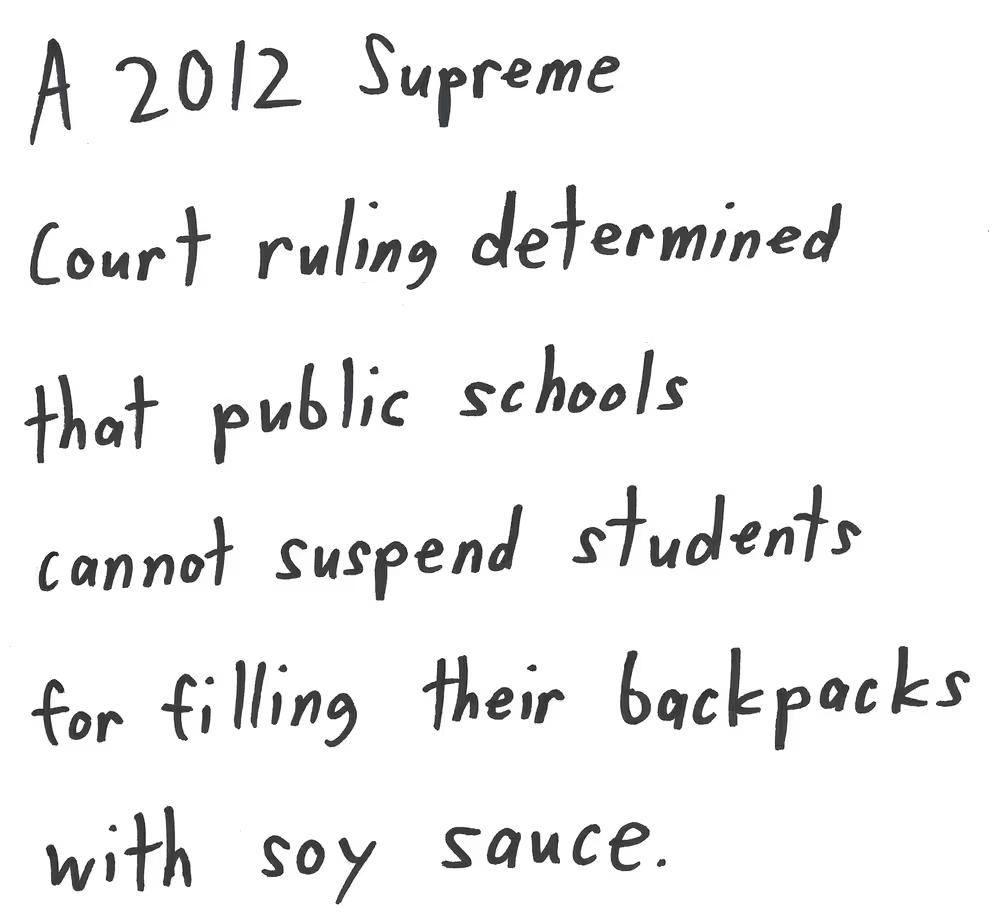 A 2012 Supreme
Court ruling determined
that public schools
cannot suspend students
for filling their backpacks
with soy sauce.